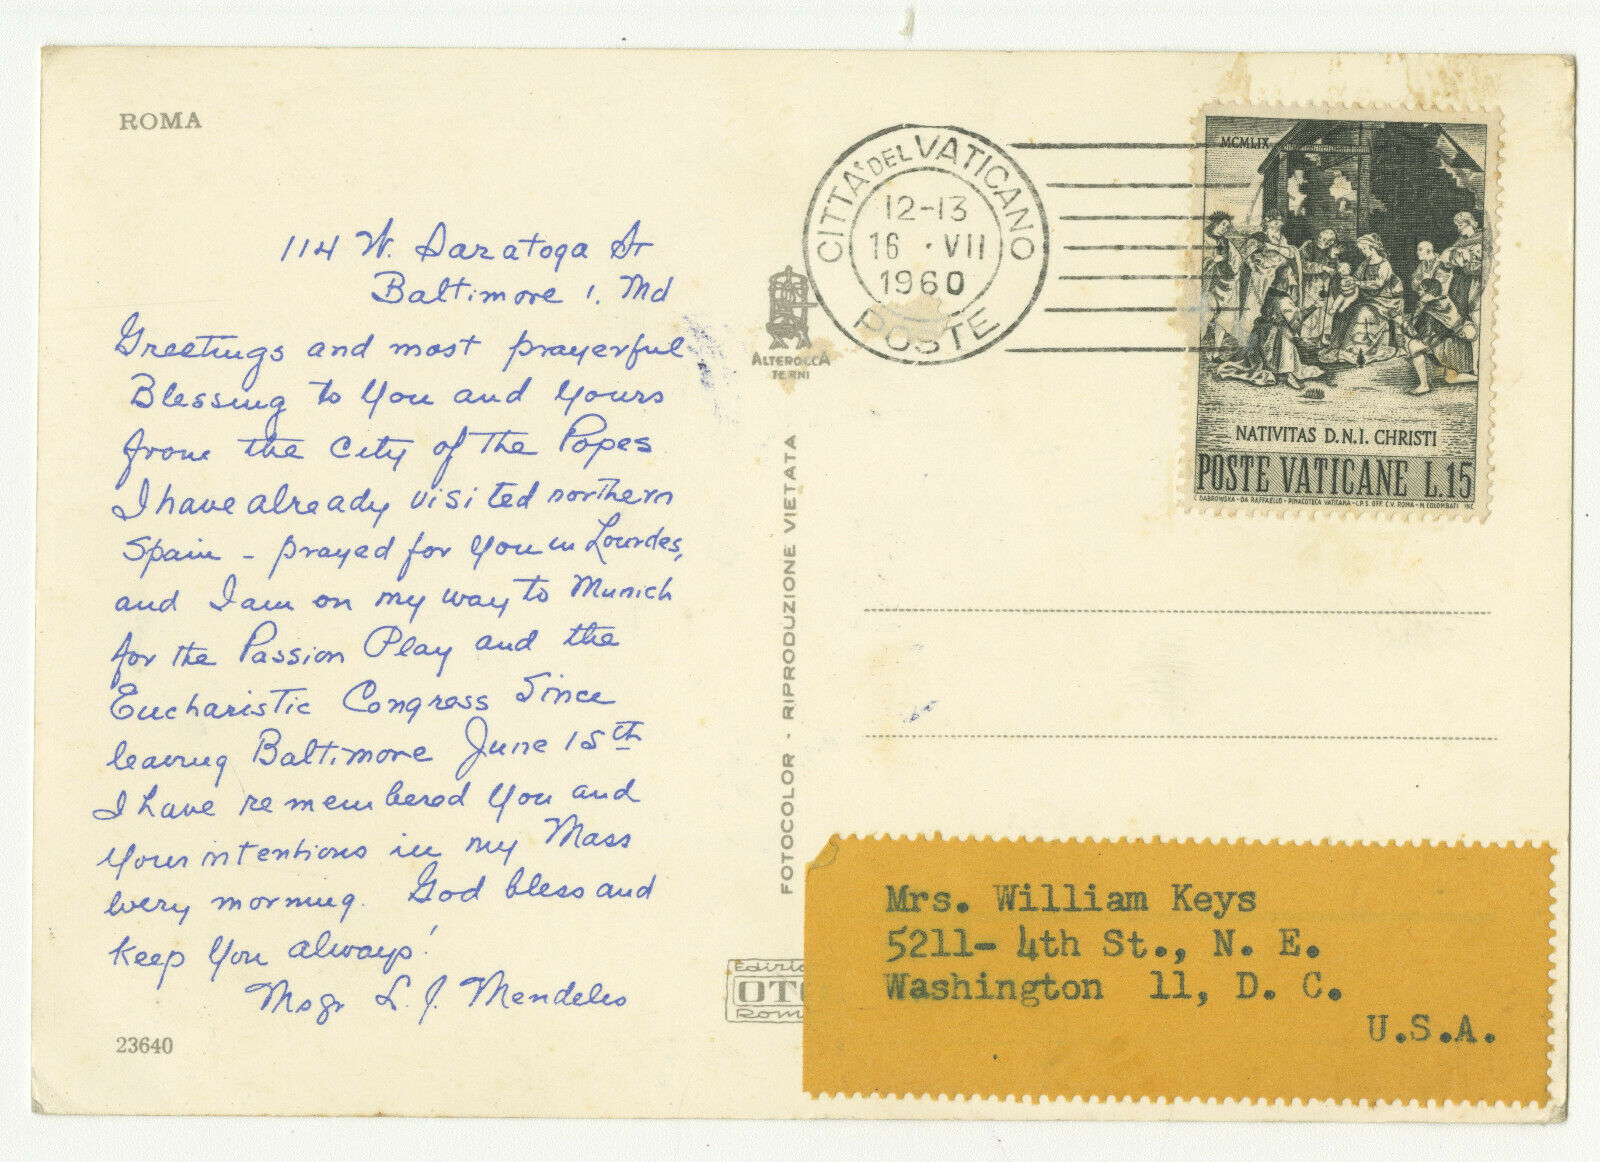 ROMA
114 W. Saratoga St
Baltimore 1, Md
Greetings and most prayerful
Blessing to You and Yours
from the City of the Popes
I have already visited northern
Spain - prayed for you in Lourdes,
and I am on my way to Munich
for the Passion Play and the
Eucharistic Congress Since
leaving Baltimore June 15th
I have remembered You and
Your intentions in my Mass
every morning. God bless and
keep You always!
Msgr L. J. Mendelis
23640
ALTEROCCA
TERNI
FOTOCOLOR · RIPRODUZIONE VIETATA
Edizio
OTO
Roma
CITTA' DEL VATICANO
12-13
16 · VII
1960
POSTE
MCMLIX
NATIVITAS D.N.I. CHRISTI
POSTE VATICANE L.15
C. DABROWSKA - DA RAFFAELLO - PINACOTECA VATICANA - I.P.S. OFF. C.V. ROMA - M. COLOMBATI INC
Mrs. William Keys
5211- 4th St., N. E.
Washington 11, D. C.
U.S.A.